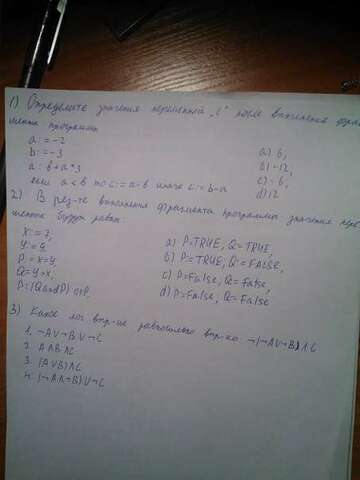 1) Определите значения переменной "c" после выполнения фраг-
мента программы
a := -2
a) 6,
b := -3
b) -12,
a := b + a * 3
c) -6,
если a < b то c := a - b иначе c := b - a
d) 12
2) В рез-те выполнения фрагмента программы значения пере-
менных будут равны
X := 2,
a) P=TRUE, Q=TRUE,
b) P=TRUE, Q=FALSE,
P := X=Y
c) P=False, Q=False,
d) P=False, Q=False
P := (Q and P) or P.
3) Какое лог выр-ие равносильно выр-ию ¬(¬A∨¬B)∧C
1. ¬A∨¬B∨¬C
2. A∧B∧C
3. (A∨B)∧C
4. (¬A∧¬B)∨¬C